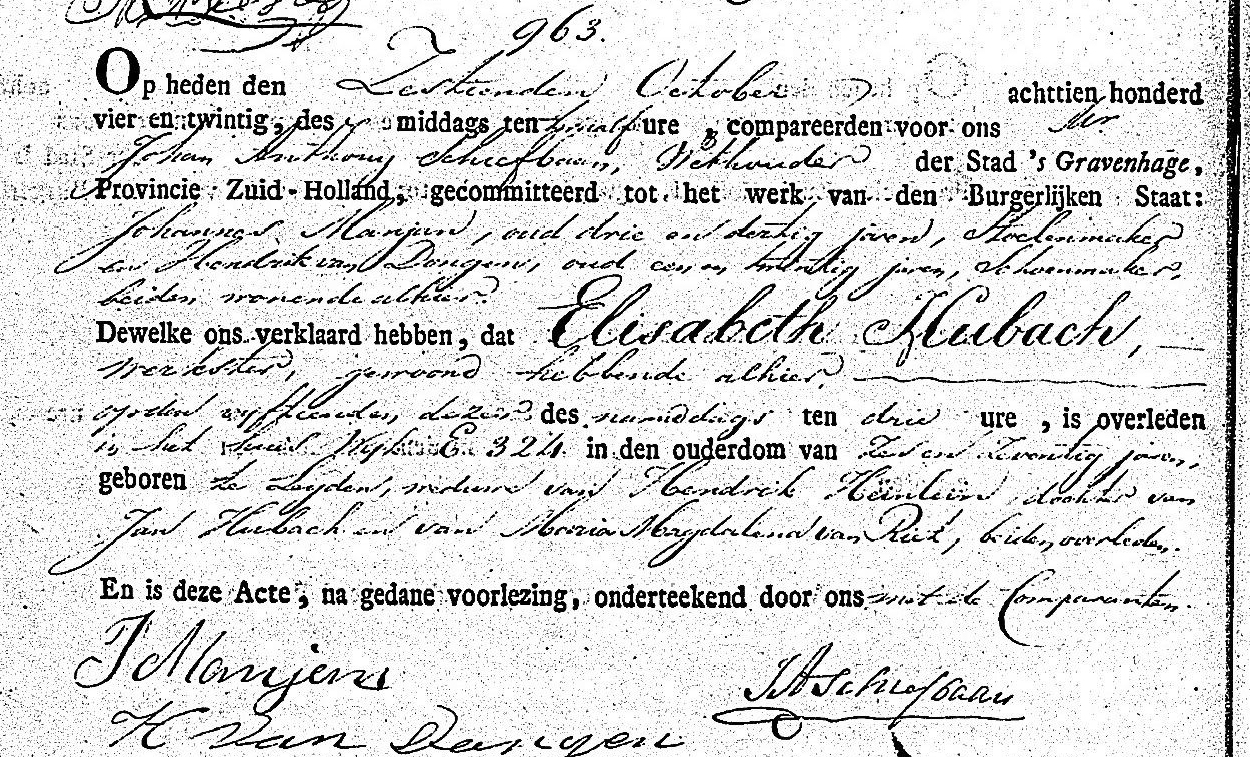 963.
Op heden den Zestienden October achttien honderd
vier en twintig, des middags ten half ure, compareerden voor ons Mr
Johan Anthony Schiefbaan, Wethouder der Stad 's Gravenhage,
Provincie Zuid-Holland, gecommitteerd tot het werk van den Burgerlijken Staat:
Johannes Manjen, oud drie en dertig jaren, Stoelenmaker
en Hendrik van Dongen, oud een en twintig jaren, Schoenmaker,
beiden wonende alhier.
Dewelke ons verklaard hebben, dat Elisabeth Hubach,
werkster, gewoond hebbende alhier,
op den vyftienden dezer des namiddags ten drie ure, is overleden
in het huis Wyk E 324 in den ouderdom van Zes en Zeventig jaren,
geboren te Leyden, weduwe van Hendrik Heinlein, dochter van
Jan Hubach en van Maria Magdalena van Riet, beiden overleden.
En is deze Acte, na gedane voorlezing, onderteekend door ons met de Comparanten.
J Manjen
JA Schiefbaan
H van Dongen